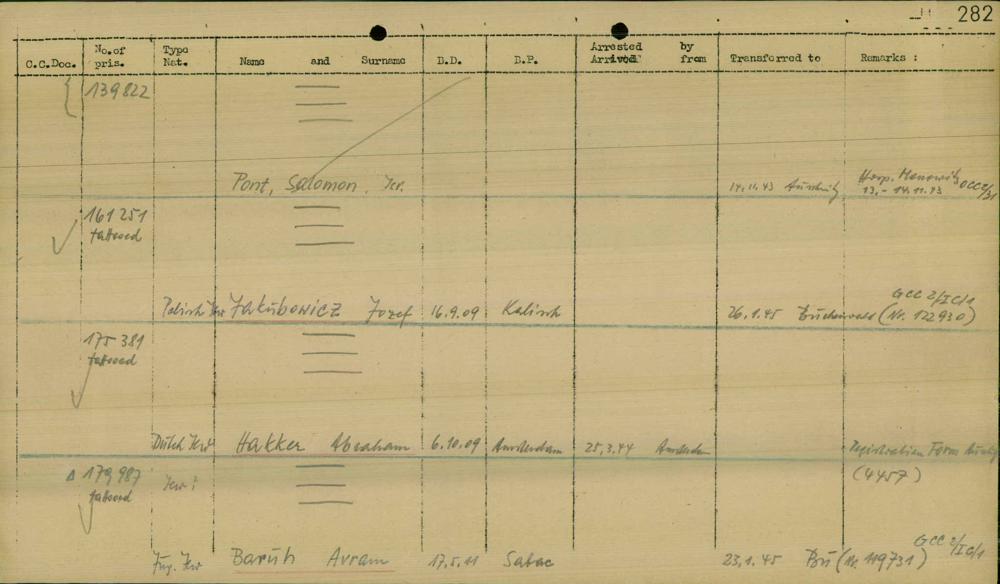 282
C.C.Doc. No. of pris. Type Nat. Name and Surname B.D. B.P. Arrested by Arrived from Transferred to Remarks :
139822
Pont, Salomon. Jew. 14.11.43 Auschwitz Hosp. Monowitz 13.- 14.11.43
161251
tattooed
Polish Jew Jakubowicz Jozef 16.9.09 Kalisch 26.1.45 Buchenwald (Nr. 122930) GCC 2/IC/1
175 381
tattooed
Dutch Jew Hakker Abraham 6.10.09 Amsterdam 25.3.44 Amsterdam Registration Form
179987 (4457)
tattooed Jew?
Jug. Jew Baruh Avram 17.5.11 Sabac 23.1.45 Bu (Nr. 119731) GCC 2/IC/1